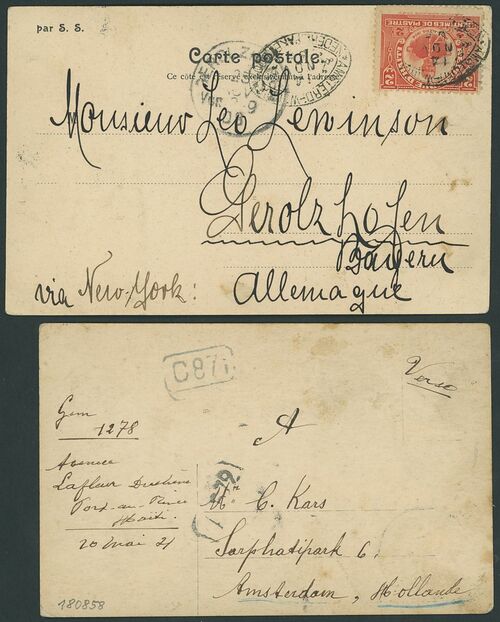 par S. S.
Carte postale.
Ce côté est réservé exclusivement à l'adresse
CENTIMES DE PIASTRE
2
Monsieur Leo Lewinson
Gerolzhofen
Bayern
via New-York:
Allemagne
C87
Verso
Gem
1278
A
Avenue
Lafleur Duchêne
Port-au-Prince
Haïti.
20 Mai 21
Mr. C. Kars
Sarphatipark 6
Amsterdam, Hollande
180858